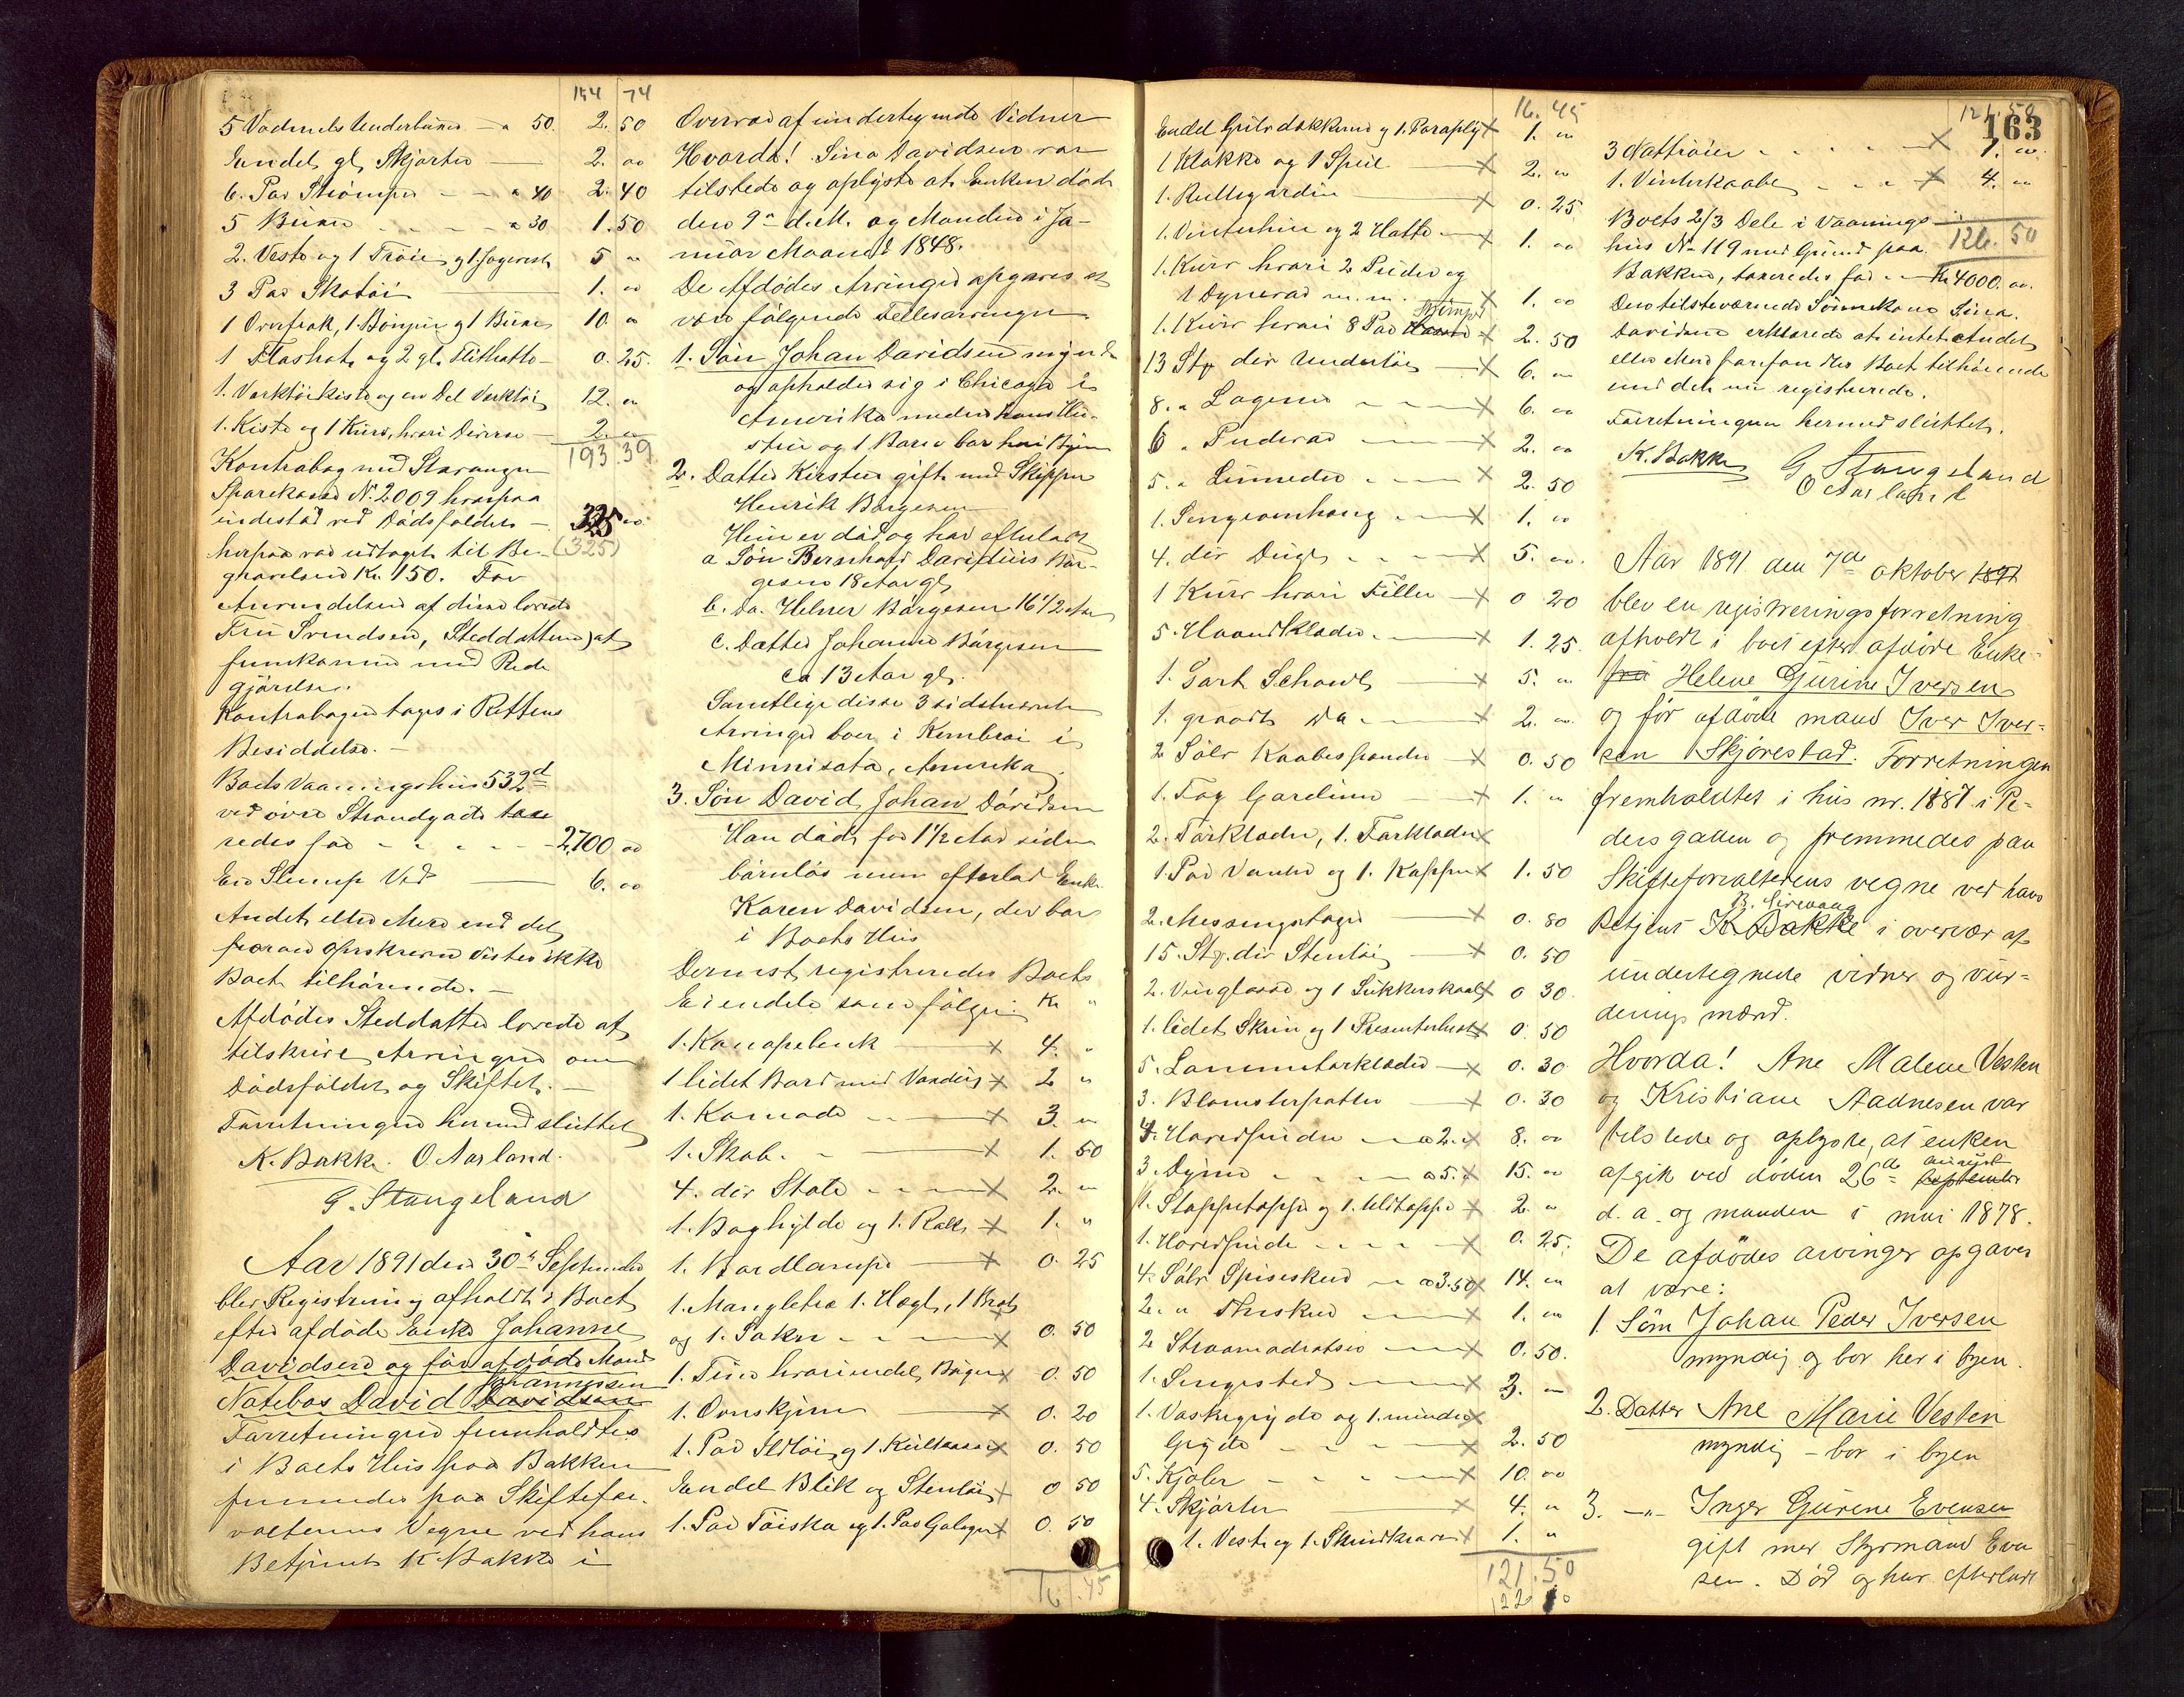 154 74
5 Vadmels Underbuxer — a 50 2. 50
Endel gl. Skjorter — 2. 00
6. Par Strømper — a 40 2. 40
5 Buxer — a 30 1. 50
2. Veste og 1 Trøie, g 1 Jagervest 5 "
3 Par Skotøi 1. 00
1 Overfrak, 1 Bonjour g 1 Buxe 10 "
1 Floshat og 2 gl. Filthatte — 0. 25.
1. Verktøikiste og en Del Verktøi 12. "
1. Kiste og 1 Kurv, hvori Diverse — 2. 00
193. 39
Kontrabog med Stavanger
Sparekasse No 2009 hvorpaa
indestod ved Dødsfaldet — 325 00
herpaa var udtaget til Be- (325)
gravelsen Kr. 150. For
Anvendelsen af disse lovede
Fru Svendsen, Steddatteren, at
fremkomme med Rede
gjørelse.
Kontrabogen toges i Rettens
Besiddelse. —
Boets Vaaningshus 532d
ved øvre Strandgade taxe
redes for - - - - 2700 00
En Slump Ved — 6. 00
Andet eller Mere end det
foran opskrevne vistes ikke
Boet tilhørende. —
Afdødes Steddatter lovede at
tilskrive Arvingerne om
Dødsfaldet og Skiftet. —
Forretningen hermed sluttet
K. Bakke. O Aarland.
G. Stangeland
Aar 1891 den 30te September
blev Registrering afholdt i Boet
efter afdøde Enke Johanne
Davidsen og før afdøde Mand
Johannessen
Notebas David Davidsen
Forretningen fremholdtes
i Boets Hus paa Bakken
fremmedes paa Skiftefor-
valterens Vegne ved hans
Betjent K. Bakke i
Overvær af undertegnede Vidner
Hvorda! Sina Davidsen var
tilstede og oplyste at Enken døde
den 9de d.M. og Manden i Ja-
nuar Maaned 1848.
De Afdødes Arvinger opgaves at
være følgende Fellesarvinger
1. Søn Johan Davidsen myndig
og opholder sig i Chicago i
Amerika medens hans Hu-
stru og 1 Barn bor her i Byen
2. Datter Kirsten gift med Skipper
Henrik Børgesen
Hun er død og har efterladt
a Søn Bernhard Davifius Bør-
gesen 18 Aar gl.
b. Da. Helner Børgesen 16 1/2 Aar
c. Datter Johanne Børgesen
ca 13 Aar gl.
Samtlige disse 3 sidstnævnte
Arvinger boer i Kimbrai i
Minnisota, Amerika.
3. Søn David Johan Davidsen
Han døde for 1 1/2 Aar siden
barnløs men efterlod Enke
Karen Davidsen, der bor
i Boets Hus
Dernest registreredes Boets
Eiendele som følger: Kr "
1. Kanapebenk × 4. "
1 lidet Bord med Voxdug × 2 "
1. Komode × 3. "
1. Skab. × 1. 50
4. dir Stole × 2. "
1. Boghylde og 1. Rok × 1. "
1. Bordlampe × 0. 25
1. Mangletræ 1. Vægt, 1 Bret
og 1. Saks × 0. 50
1. Tine hvori endel Bøger × 0. 50
1. Ovnskjerm × 0. 20
1. Par Ildtøi, g 1. Kulkasse × 0. 50
Endel Blik og Stentøi × 0 50
1. Par Tøisko og 1. Par Galoger × 0. 50
16. 45
16. 45
Endel Gulvdækkener g 1. Paraply × 1. "
1 Klokke og 1 Speil × 2. "
1. Rullegardin × 0. 25.
1. Vinterhue og 2 Hatte × 1. 00
1. Kurv hvori 2 Puder og
1 Dynevar m. m. × 1. 00
Strømper
1. Kurv hvori 8 Par × 2. 50
13 Stk dir Undertøi × 6. "
8. " Lagener × 6. 00
6 " Pudevar × 2. 00
5. " Linneder × 2. 50
1. Sengeomhæng × 1. 00
4. dir Duge × 5. 00.
1 Kurv hvori Filler × 0 20
5. Haandklæder. × 1. 25.
1. Sort Schawl × 5. "
1. graat Da × 2. 00.
2 Sølv Kaabespænder × 0. 50
1. Fag Gardiner × 1. "
2. Tørklæder, 1. Forklæder ×
1. Par Vanter og 1. Kappe × 1. 50
2. Messingstager × 0. 80
15. Stk. dir Stentøi × 0. 50
2. Vinglasse og 1 Sukkerskaal × 0 30.
1. lidet Skrin og 1 Presenterbret × 0. 50
5. Lommetørklæder × 0. 30
3. Blomsterpotter × 0. 30
4. Hovedpuder — a 2. × 8. 00
3. Dyner - - - a 5. × 15. 00
1. Stoppetæppe og 1. Uldtæppe × 2. "
1. Hovedpude × 0. 25.
4. Sølv Spiseskeer — a 3.50 × 14. "
2. " Theskeer × 1. "
2 Straamadratser × 0. 50.
1. Sengested × 3. "
1. Vaskegryde og 1. mindre ×
Gryde × 2. 50
5. Kjoler × 10. 00
4. Skjørter × 4. "
1. Vest og 1. Skindkrave × 1. "
121. 50
122 10
121. 50
163
3 Nattrøier × 1. 00.
1. Vinterkaabe × 4. "
126. 50
Boets 2/3 Dele i Vaanings-
hus No 119 med Grund paa
Bakken, taxeredes for — Kr 4000. 00.
Den tilstedeværende Sønnekone Sina.
Davidsen erklærede at intet Andet
eller Mere forefandtes Boet tilhørende
end det nu registrerede.
Forretningen hermed sluttet.
K. Bakke G. Stangeland
O Aarland
Aar 1891 den 7de oktober 1891
blev en registreringsforretning
afholdt i boet efter afdøde Enke-
fru Helene Gurine Iversen
og før afdøde mand Iver Iver-
sen Skjørestad. Forretningen
fremholdtes i hus nr. 1887 i Pe-
dersgaden og fremmedes paa
Skifteforvalterens vegne ved hans
B. Sirevaag
Betjent K Bakke i overvær af
undertegnede vidner og vur-
derings mænd.
Hvorda! Ane Malene Vesten
og Kristiane Aadnesen var
tilstede og oplyste, at enken
august
afgik ved døden 26de september
d. a. og manden i mai 1878.
De afdødes arvinger opgaves
at være:
1. Søn Johan Peder Iversen
myndig og bor her i byen.
2. Datter Ane Marie Vesten
myndig – bor i byen
3. —"— Inger Gurene Evensen
gift med Styrmand Even
sen. Død og har efterladt